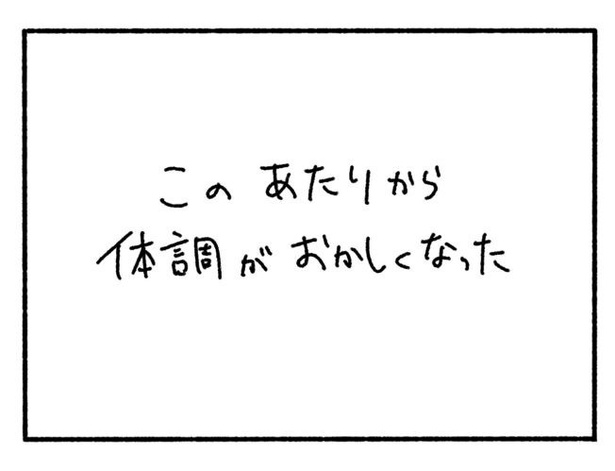 このあたりから
体調がおかしくなった